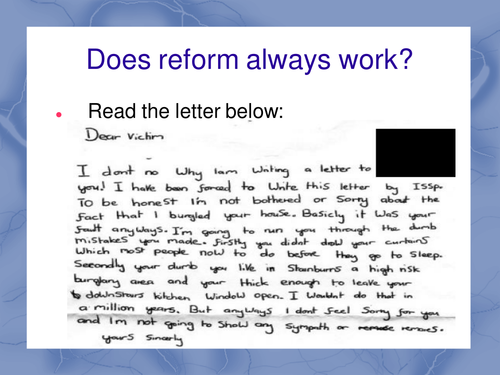 Does reform always work?
Read the letter below:
Dear Victim
I dont no Why Iam Writing a letter to
you! I have been forced to Write this letter by ISSP.
To be honest I'm not bothered or Sorry about the
fact that I burgled your house. Basicly it was your
fault anyways. I'm going to run you through the dumb
mistakes you made. Firstly you didnt draw your curtains
Which most people now to do before they go to sleep.
Secondly your dumb you live in Stanburn a high risk
burglary area and your thick enough to leave your
downstairs kitchen window open. I Wouldnt do that in
a million years. But anyways I dont feel Sorry for you
and Im not going to show any sympath or remores.
yours Sincerly